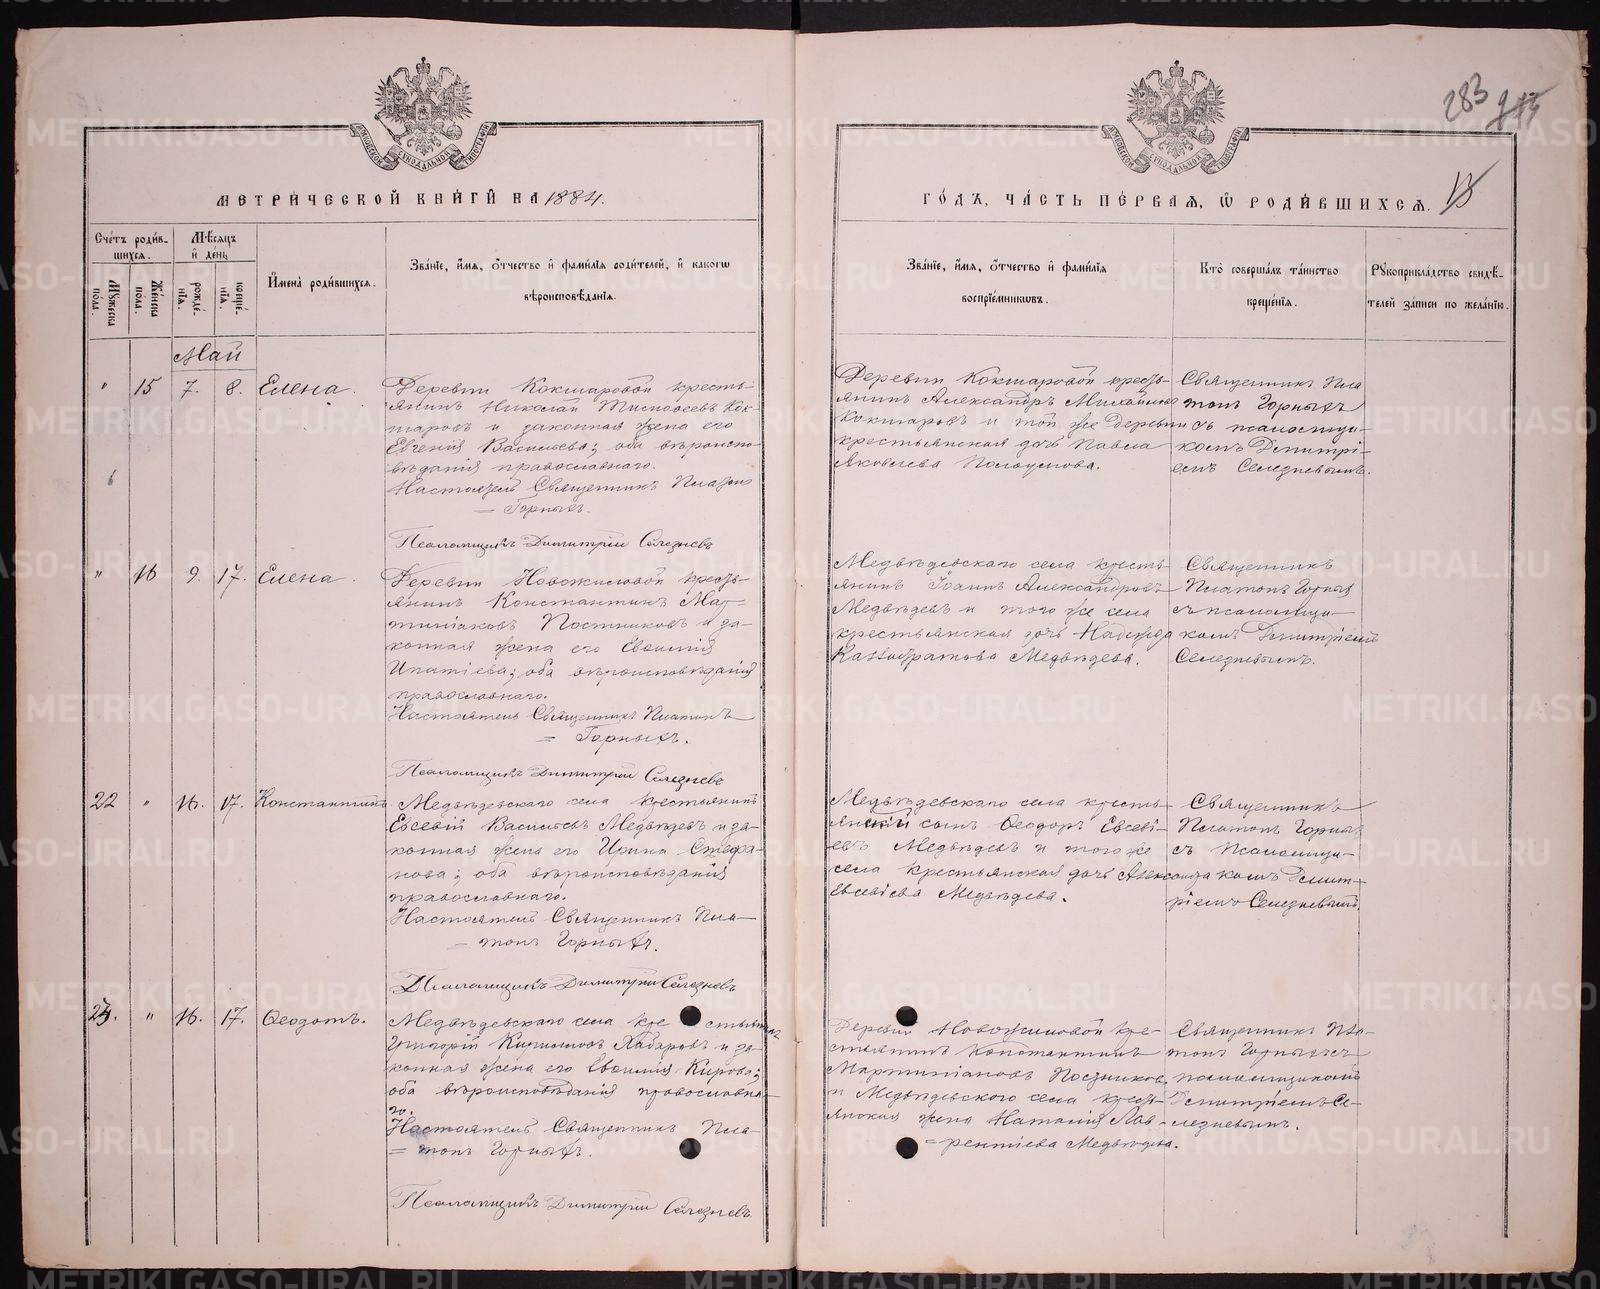 283
МЕТРИЧЕСКОЙ КНИГИ НА 1884.
ГОДЪ, ЧАСТЬ ПЕРВАЯ, Ѡ РОДИВШИХСЯ.
Счетъ родив-
шихся.
Мѣсяцъ
и день
Имена родившихся.
Званіе, имя, отчество и фамилія родителей, и какогѡ
вѣроисповѣданія.
Мужеска
пола.
Женска
пола.
рожде-
нія.
креще-
нія.
Званіе, имя, отчество и фамилія
воспріемникѡвъ.
Кто совершалъ таинство
крещенія.
Рукоприкладство свидѣ-
телей записи по желанію.
Май
" 15 7. 8. Елена.
Деревни Кокшаровой кресть-
янинъ Николай Кок-
шаровъ и законная жена его
Евгенія Васильева; оба вѣроиспо-
вѣданія православнаго.
Настоятель Священникъ Платонъ
Горныхъ.
Псаломщикъ Димитрій Селезневъ
Деревни Кокшаровой кресть-
янинъ Александръ Михайловъ
Кокшаровъ и той же деревни
крестьянская дочь Павла
Яковлева
Священникъ Пла
тонъ Горныхъ
съ псаломщи-
комъ Димитрі-
емъ Селезневымъ.
" 16 9. 17. Елена.
Деревни Новожиловой кресть-
янинъ Константинъ Мар-
тиніановъ Постниковъ и за-
конная жена его Евѳимія
Ипатіева; оба вѣроисповѣданія
православнаго.
Настоятель Священникъ Платонъ
Горныхъ.
Псаломщикъ Димитрій Селезневъ
Медвѣдевскаго села кресть-
янинъ Іоаннъ Александровъ
Медвѣдевъ и того же села
крестьянская дочь Надежда
Каллистратова Медвѣдева.
Священникъ
Платонъ Горныхъ
съ псаломщи-
комъ Димитріемъ
Селезневымъ.
22 " 16. 17. Константинъ.
Медвѣдевскаго села крестьянинъ
Евсевій Васильевъ Медвѣдевъ и за-
конная жена его Ирина Стефа-
нова; оба вѣроисповѣданія
православнаго.
Настоятель Священникъ Пла-
тонъ Горныхъ.
Псаломщикъ Димитрій Селезневъ
Медвѣдевскаго села кресть-
янскій сынъ Ѳеодоръ Евсеві-
евъ Медвѣдевъ и того же
села крестьянская дочь Александра
Евсевіева Медвѣдева.
Священникъ
Платонъ Горныхъ
съ Псаломщи-
комъ Димит-
ріемъ Селезневымъ.
23. " 16. 17. Ѳеодотъ.
Медвѣдевскаго села крестьянинъ
Григорій Кирилловъ Хабаровъ и за-
конная жена его Евѳимія Кирова;
оба вѣроисповѣданія православна-
го.
Настоятель Священникъ Пла-
тонъ Горныхъ.
Псаломщикъ Димитрій Селезневъ.
Деревни Новожиловой кре-
стьянинъ Константинъ
Мартиніановъ Постниковъ
и Медвѣдевскаго села кресть-
янская жена Наталія Лав-
рентіева Медвѣдева.
Священникъ Пла-
тонъ Горныхъ съ
псаломщикомъ
Димитріемъ Се-
лезневымъ.
METRIKI.GASO-URAL.RU